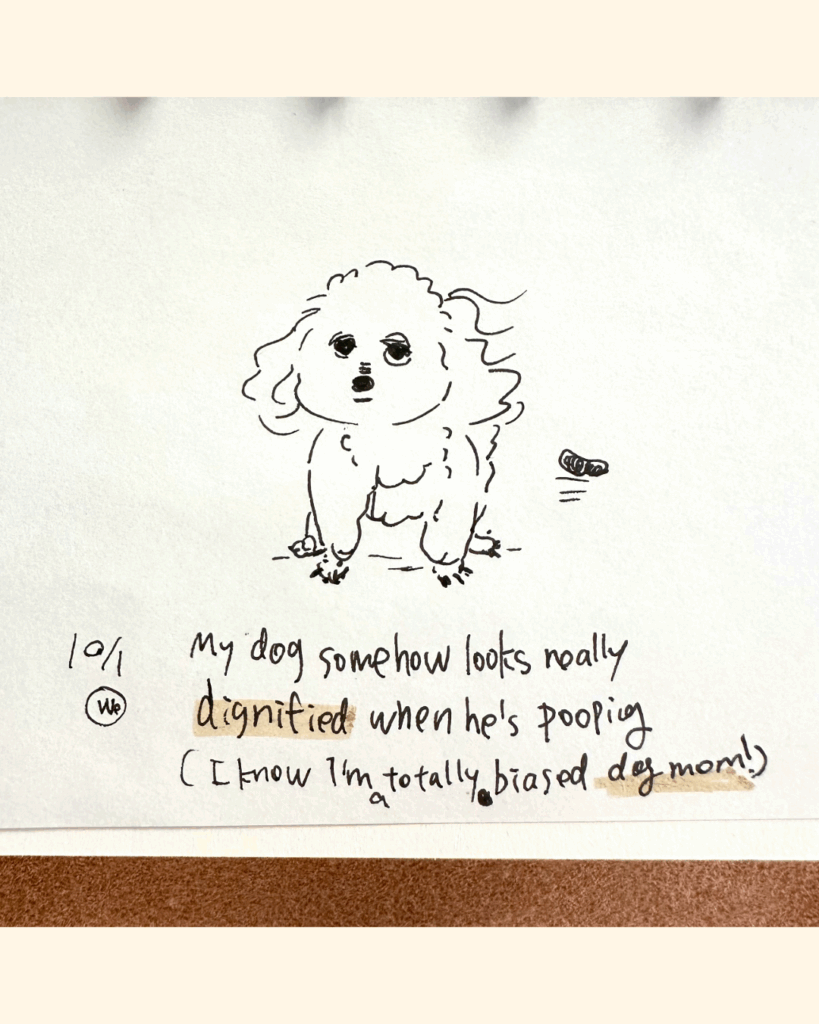 10/1 My dog somehow looks really
We dignified when he's pooping
(I know I'm a totally biased dog mom!)